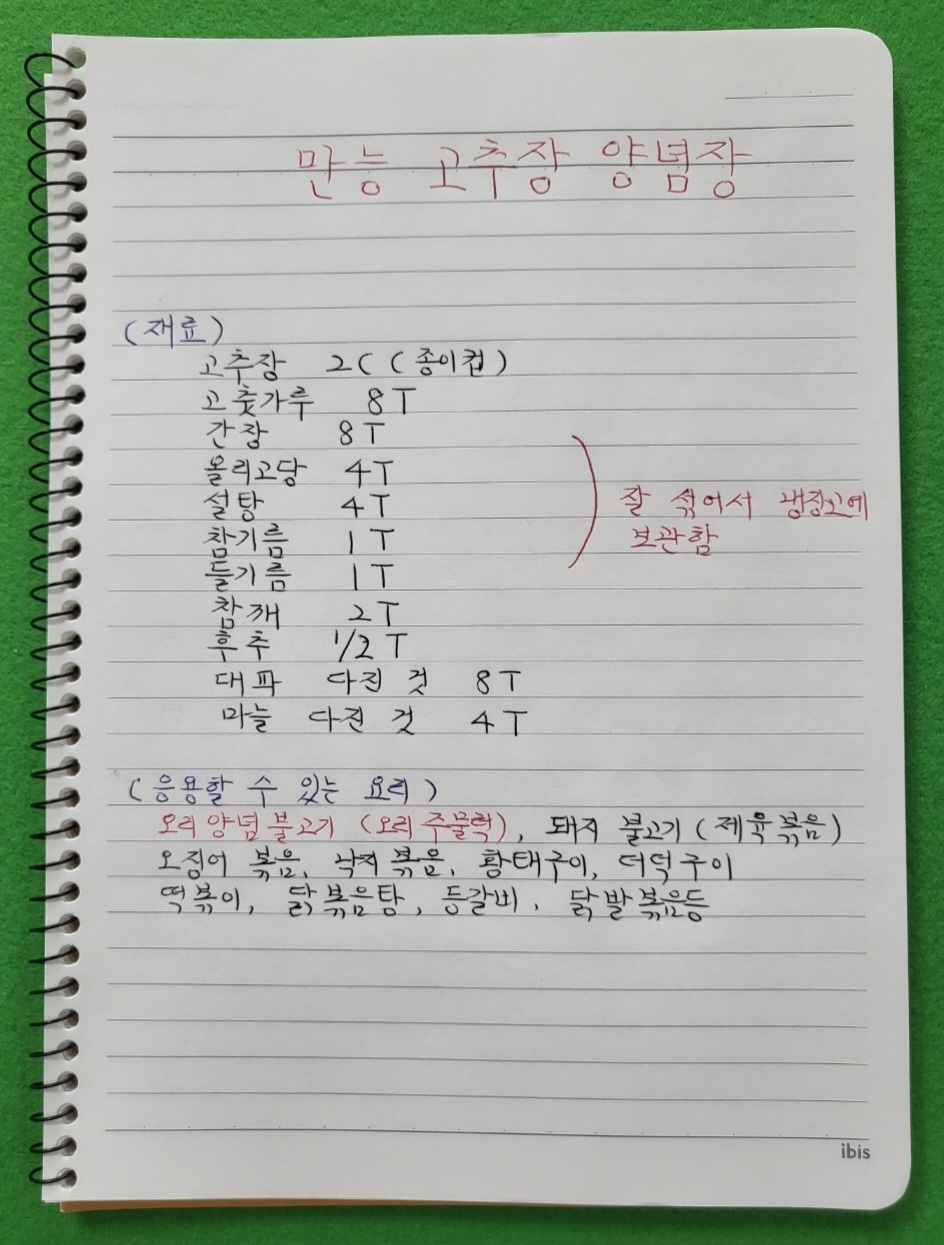 만능 고추장 양념장
(재료)
고추장 2C (종이컵)
고춧가루 8T
간장 8T
올리고당 4T
설탕 4T
참기름 1T
들기름 1T
참깨 2T
후추 1/2T
대파 다진 것 8T
마늘 다진 것 4T
잘 섞어서 냉장고에
보관함
(응용할 수 있는 요리)
오리양념불고기 (오리주물럭), 돼지 불고기(제육볶음)
오징어 볶음, 낙지볶음, 황태구이, 더덕구이
떡볶이, 닭볶음탕, 등갈비, 닭발볶음등
ibis